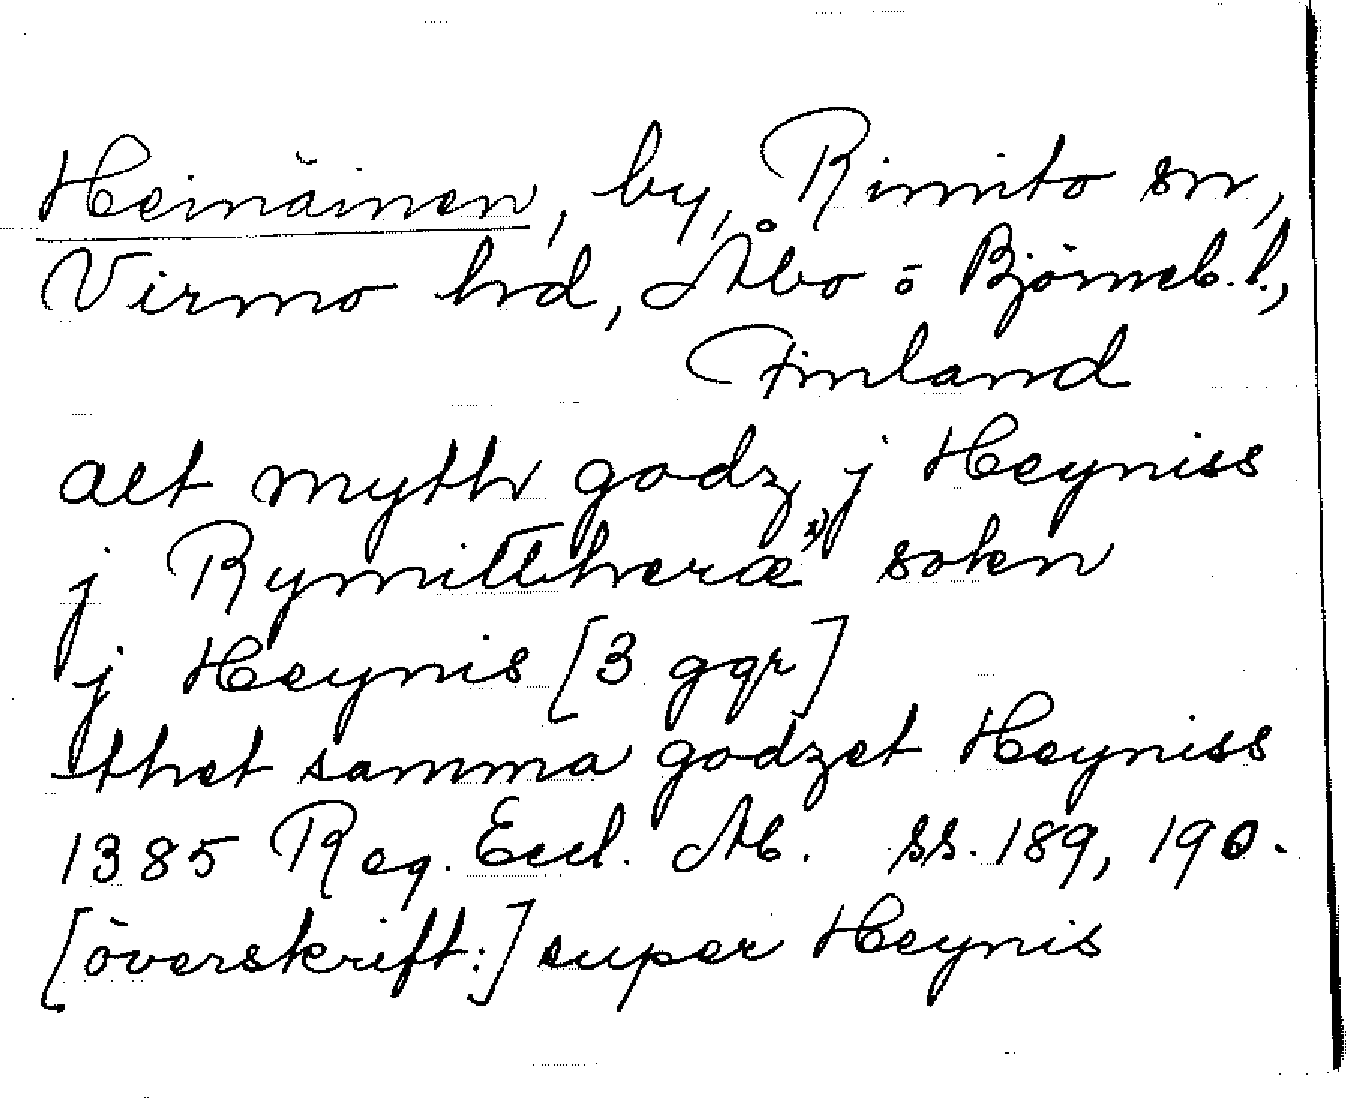 Heinäinen, by, Rimito sn,
Virmo hd, Åbo o Björneb. l.,
Finland
alt myth godz j Heyniss
j Rymittheræ x) sokn
j Heynis [3 ggr]
thet samma godzet Heyniss
1385 Reg. Eccl. Ab. ss. 189, 190.
[överskrift:] super Heynis